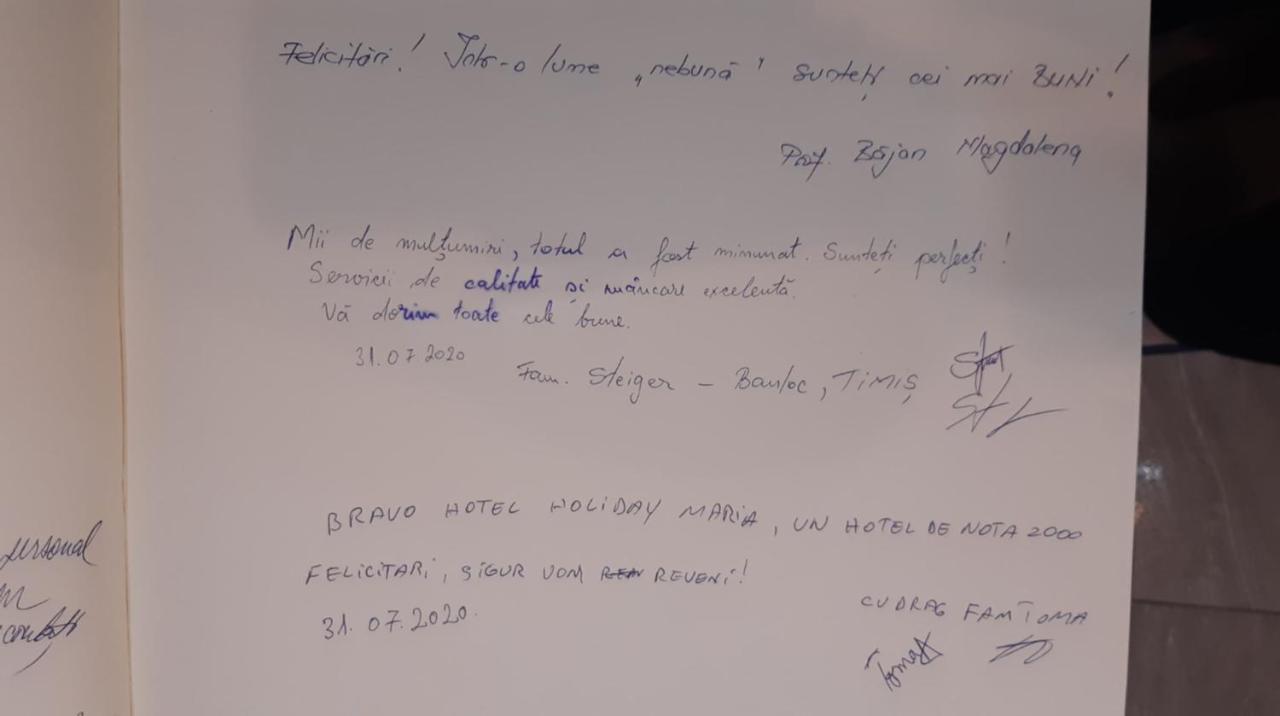 Felicitări! Într-o lume „nebună” sunteți cei mai BUNI!
Prof. Băjan Magdalena
Mii de mulțumiri, totul a fost minunat. Sunteți perfecți!
Servicii de calitate și mâncare excelentă.
Vă dorim toate cele bune.
31.07 2020
Fam. Steiger – Banloc, TIMIȘ
BRAVO HOTEL HOLIDAY MARIA, UN HOTEL DE NOTA 2000
FELICITARI, SIGUR VOM REVENI!
31.07.2020.
CU DRAG FAM TOMA
Toma
personal